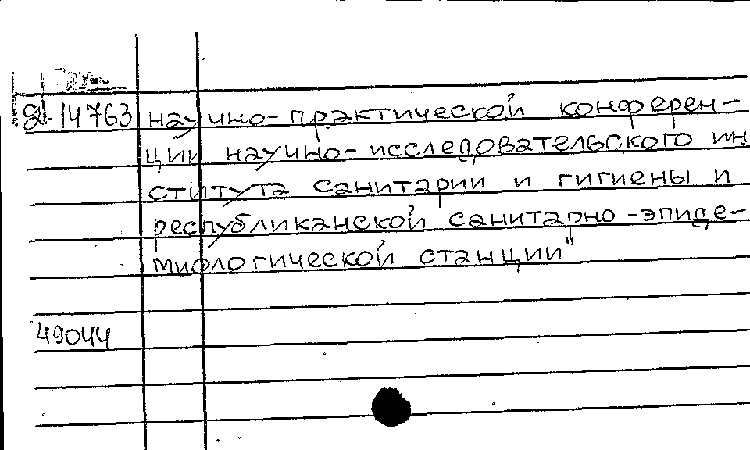 2-14763 научно-практической конферен-
ции научно-исследовательского ин
ститута санитарии и гигиены и
республиканской санитарно-эпиде-
миологической станции"
49044